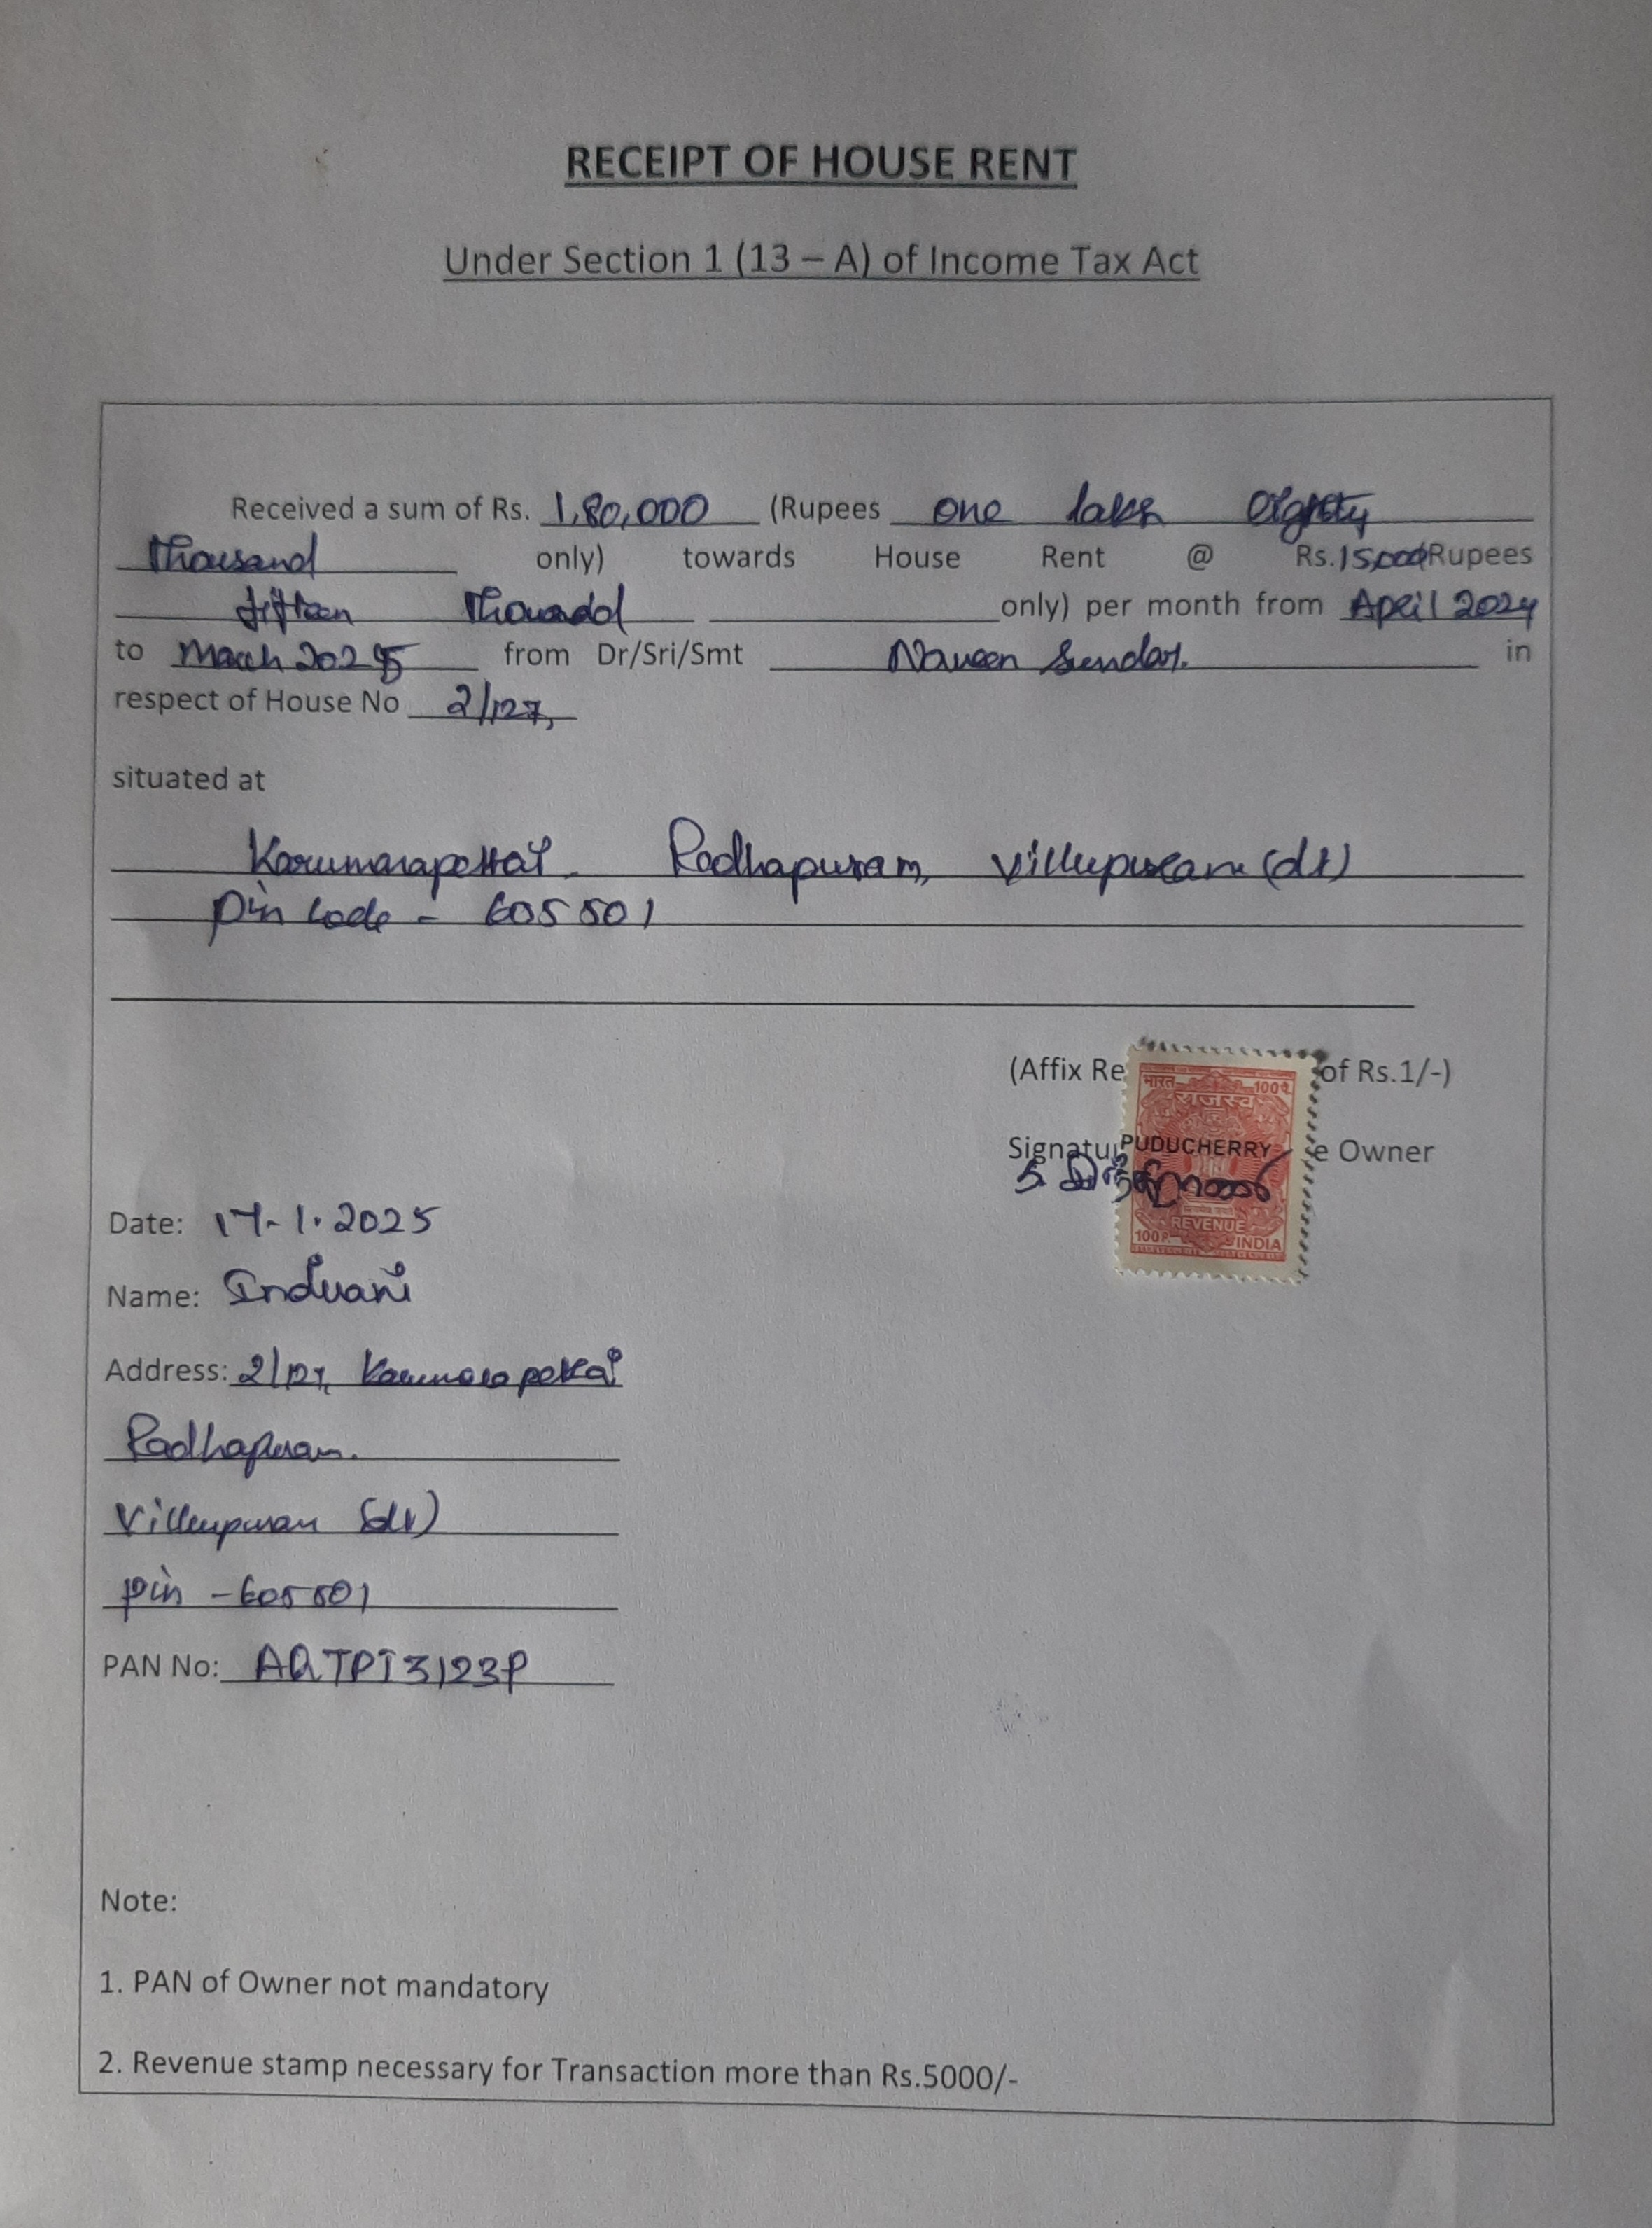 RECEIPT OF HOUSE RENT
Under Section 1 (13 – A) of Income Tax Act
Received a sum of Rs. 1,80,000 (Rupees one lakh Eighty
Thousand only) towards House Rent @ Rs.15,000(Rupees
fifteen Thousand only) per month from April 2024
to March 2025 from Dr/Sri/Smt Naveen Sundar. in
respect of House No 2/127,
situated at
Karumarapettai Radhapuram, Villupuram (dt)
Pin code - 605 501
(Affix Re of Rs.1/-)
भारत 100 प.
राजस्व
Signatu PUDUCHERRY e Owner
த. இந்திராணி
REVENUE
100 P. INDIA
Date: 17-1.2025
Name: Indirani
Address: 2/127, Karumarapettai
Radhapuram.
Villupuram (dt)
Pin - 605 501
PAN No: AQTPI3123P
Note:
1. PAN of Owner not mandatory
2. Revenue stamp necessary for Transaction more than Rs.5000/-